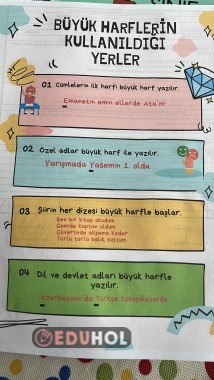 BÜYÜK HARFLERİN
KULLANILDIĞI
YERLER
01 Cümlelerin ilk harfi büyük harf yazılır.
Emanetin emin ellerde Ata'm!
02 Özel adlar büyük harf ile yazılır.
Yarışmada Yasemin 1. oldu.
03 Şiirin her dizesi büyük harfle başlar.
Ben bir kitap okudum
Gemide kaptan oldum
Güvertede akşama kadar
Türlü türlü balık tuttum
04 Dil ve devlet adları büyük harfle
yazılır.
Azerbaycan'da Türkçe konuşuluyordu.
EDUHOL